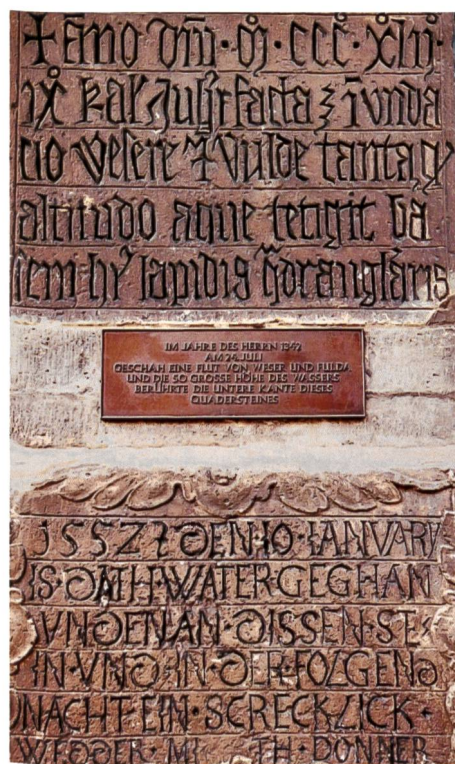 + Año dñi · m̊ · ccc̊ · xlij̊ ·
ix̊ kal' Julij facta ē īvnda
cio Wesere ⁊ Vulde tanta qͥ
altitudo aque tetigit ba
sem hꝰ lapidis qͣdrangl'aris
IM JAHRE DES HERRN 1342
AM 24. JULI
GESCHAH EINE FLUT VON WESER UND FULDA
UND DIE SO GROSSE HÖHE DES WASSERS
BERÜHRTE DIE UNTERE KANTE DIESES
QUADERSTEINES
1552 ⁊ DEN · 10 · IANVARY
IS · DATH · WATER · GEGHAN
VNDEN · AN · DISSEN · STE
IN · VND · IN · DER · FOLGEND
NACHT · EIN · SCRECKLICK ·
WEDDER · MI TH · DONNER